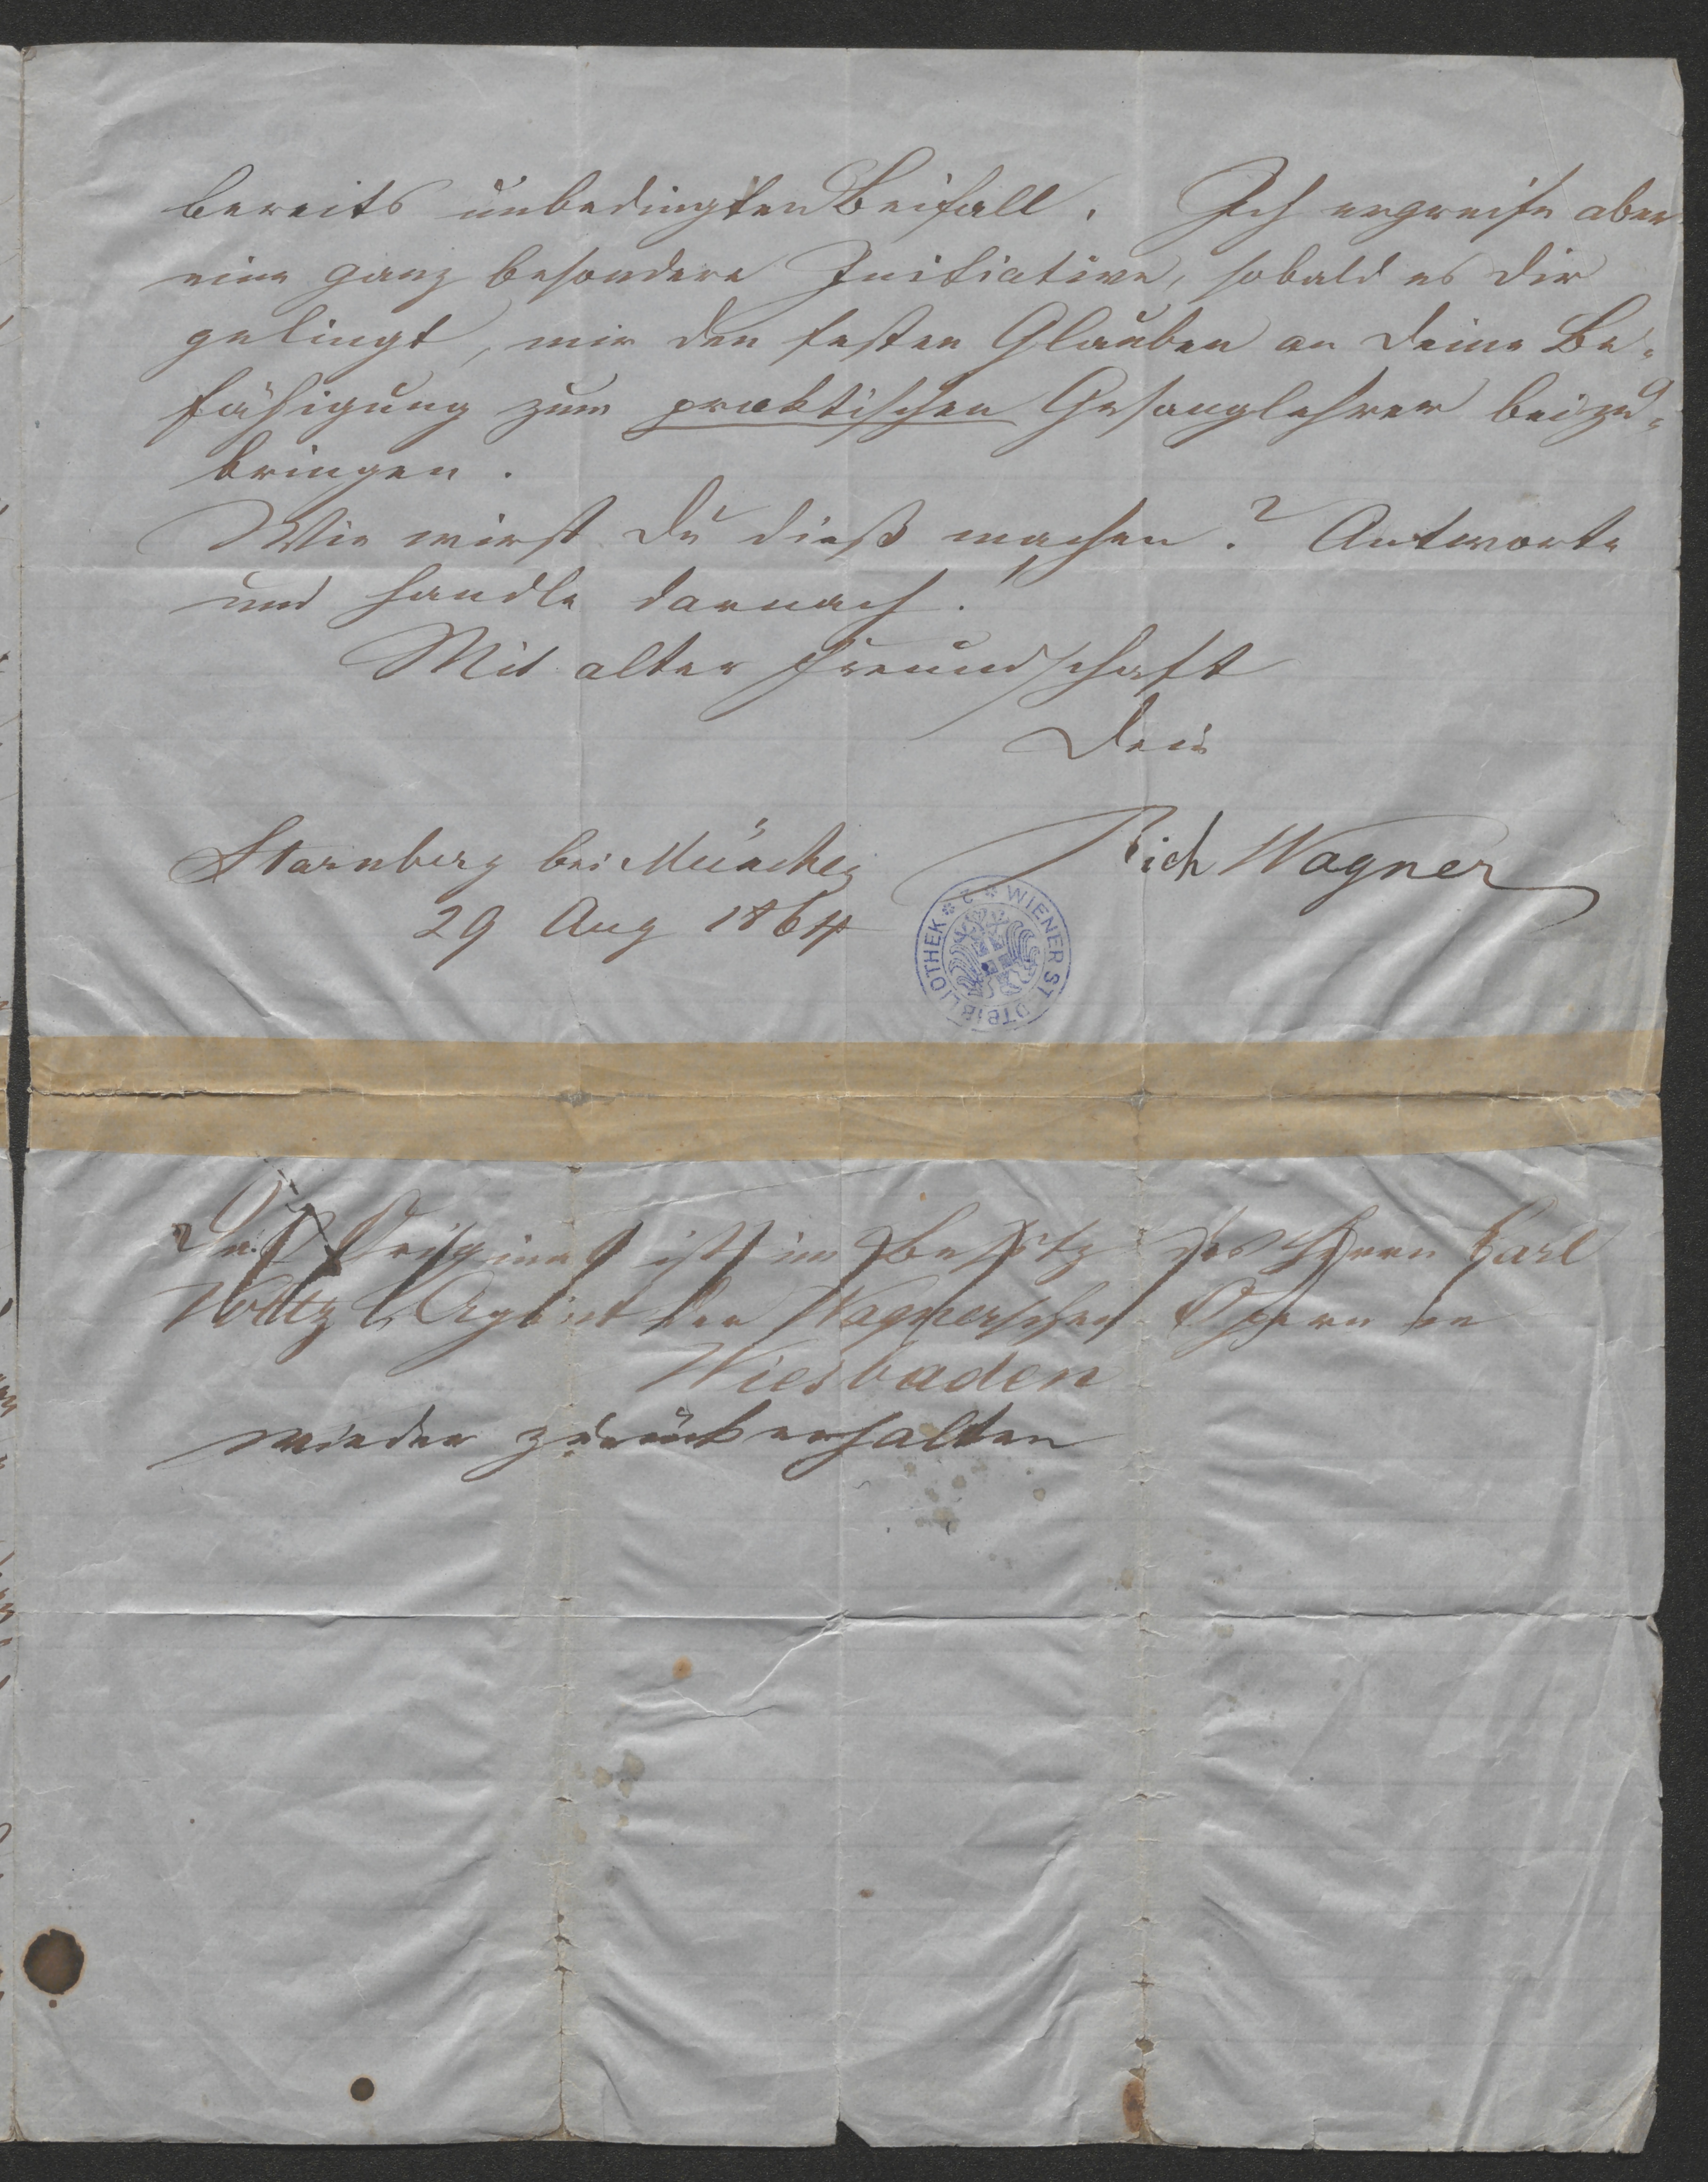 bereits unbedingten Beifall. Ich ergreife aber
eine ganz besondere Initiative, sobald es Dir
gelingt, mir den festen Glauben an Deine Be-
fähigung zum praktischen Gesanglehrer beizu-
bringen.
Wie wirst Du dieß machen? Antworte
und handle darnach!
Mit alter Freundschaft
Dein
Rich Wagner
Starnberg bei München
29 Aug 1864
WIENER ST DTBIBLIOTHEK
Das Original ist im Besitz des Herrn Carl
Voltz Agent der Wagnerschen Opern in
Wiesbaden
wieder zurückerhalten